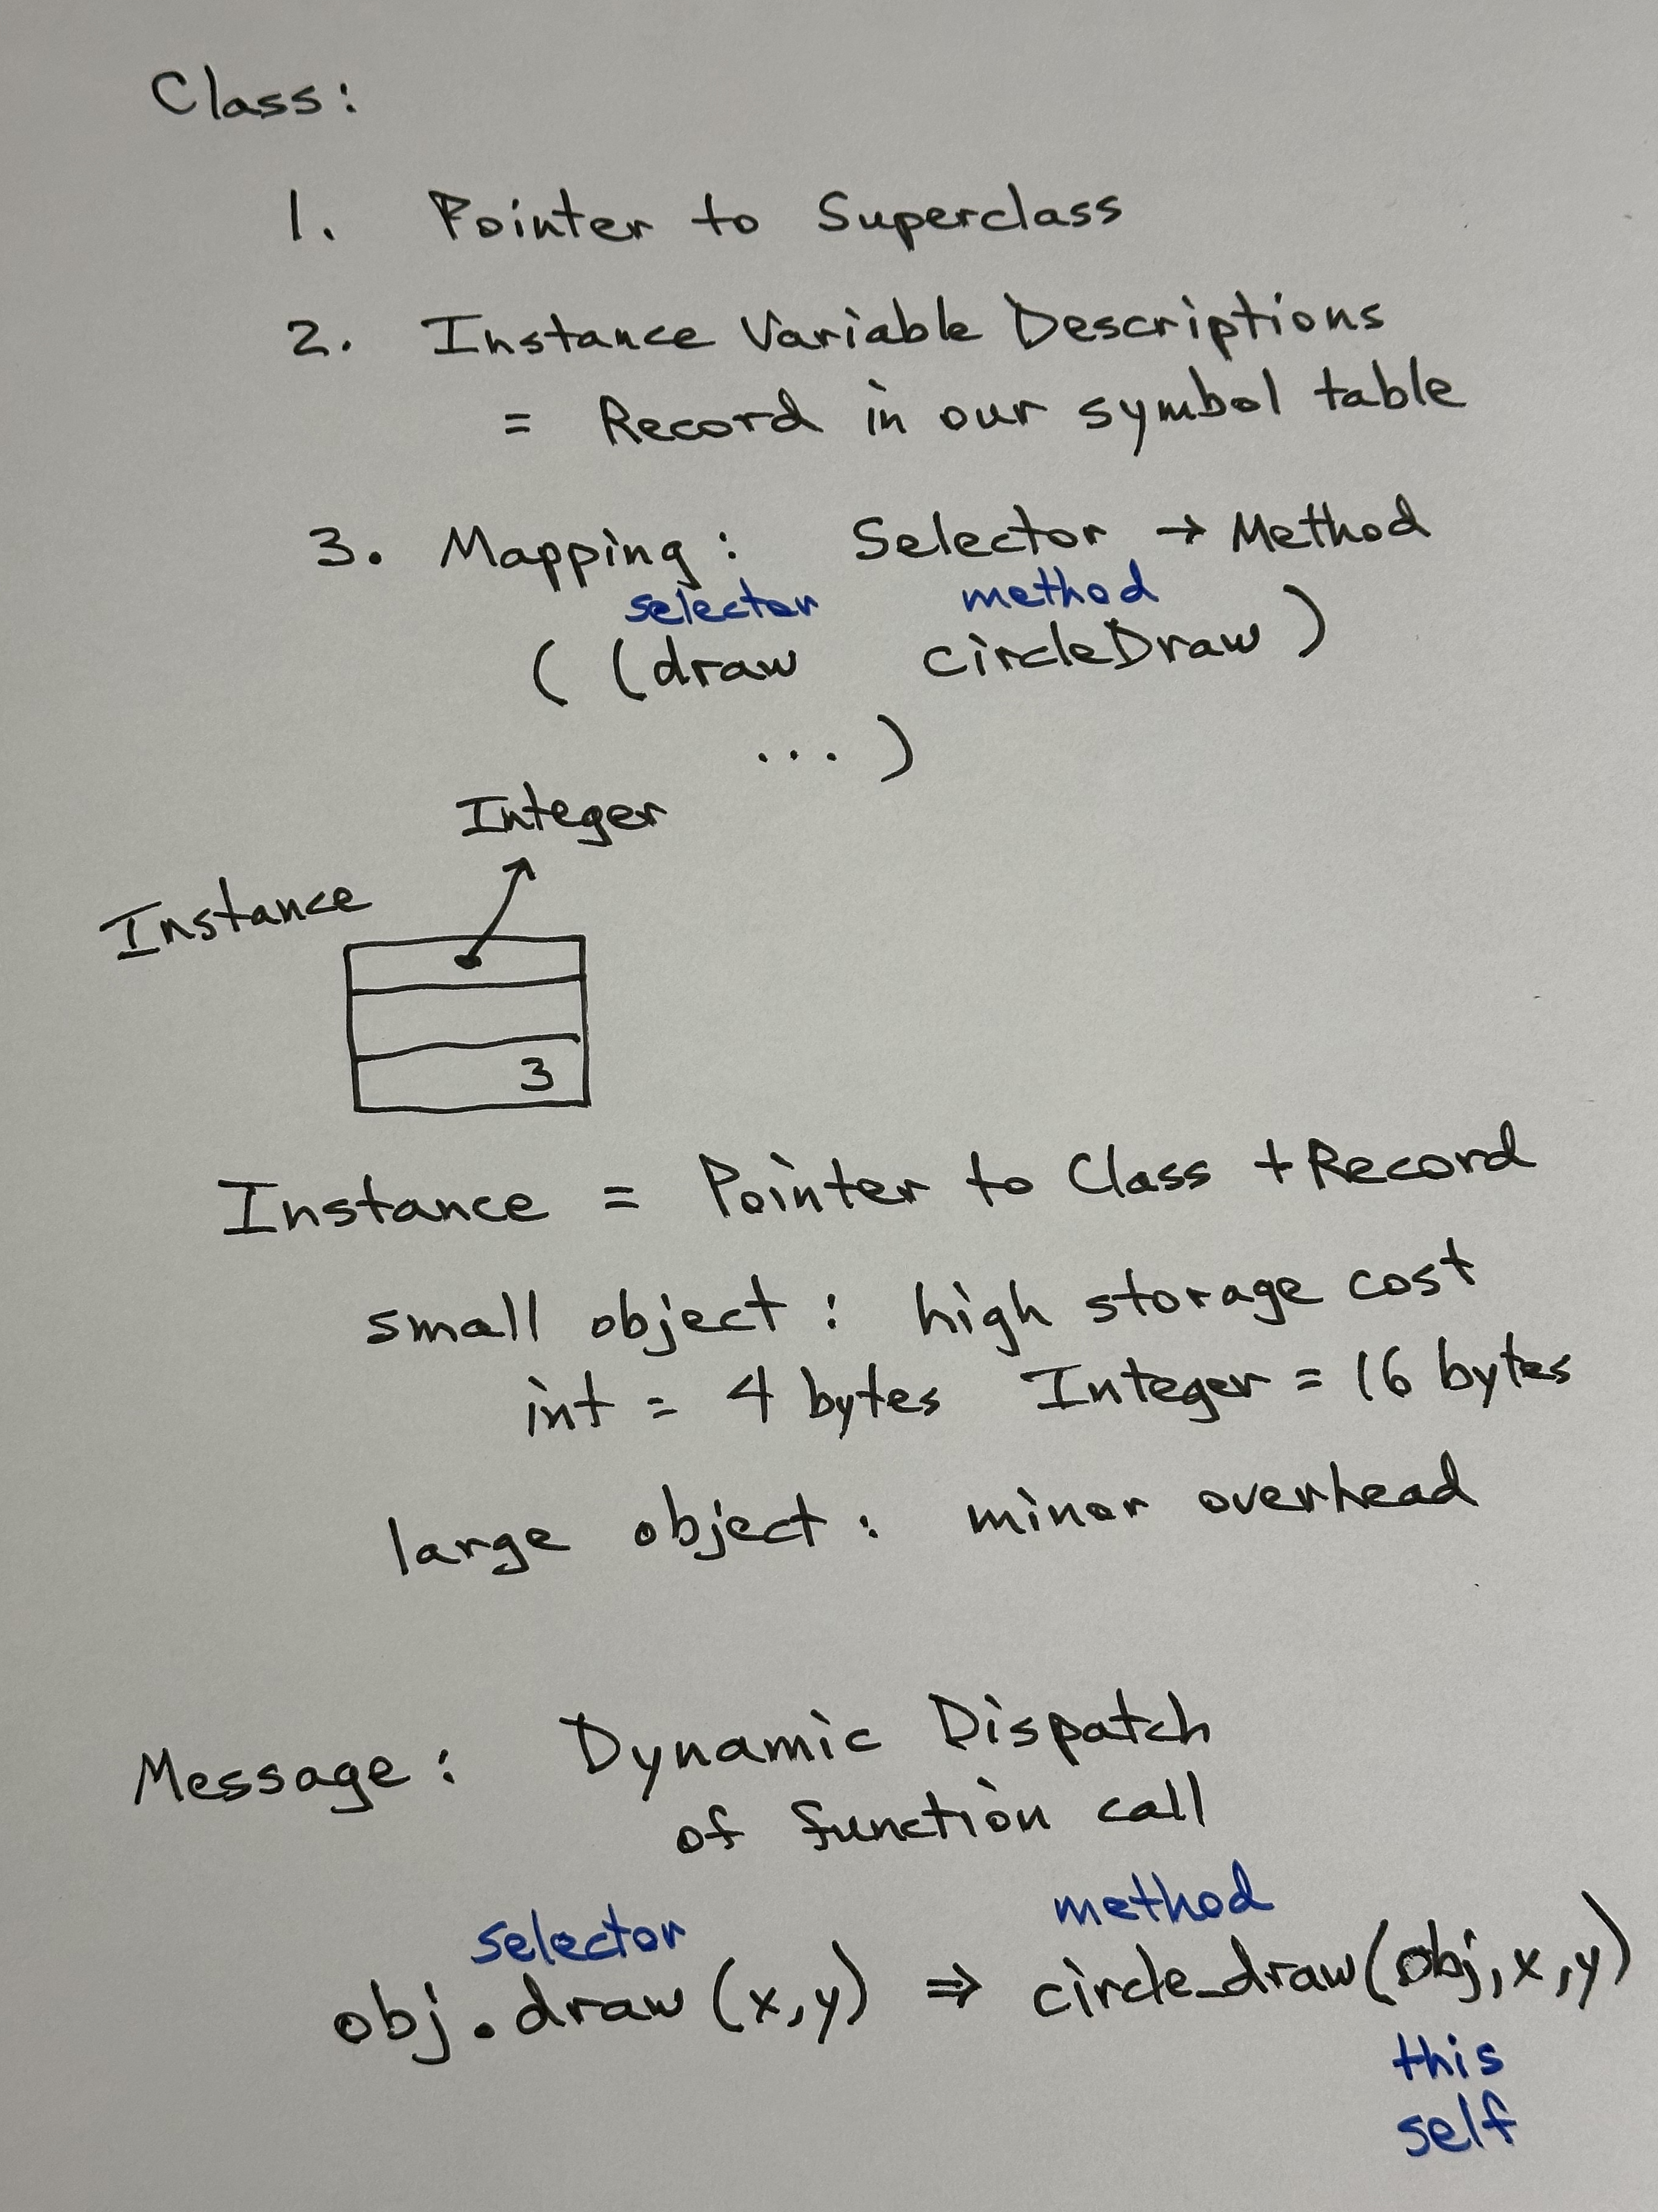 Class:
1. Pointer to Superclass
2. Instance Variable Descriptions
= Record in our symbol table
3. Mapping: Selector → Method
selector method
( (draw circleDraw )
... )
Integer
Instance
3
Instance = Pointer to Class + Record
small object : high storage cost
int = 4 bytes Integer = 16 bytes
large object : minor overhead
Message : Dynamic Dispatch
of function call
selector method
obj.draw (x,y) ⇒ circle_draw(obj,x,y)
this
self